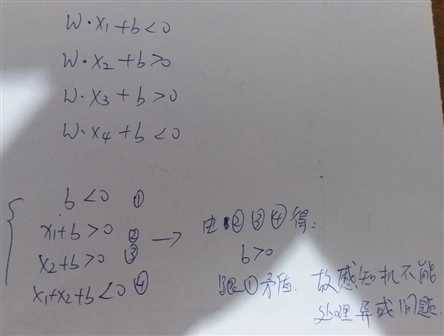 W·x₁+b<0
W·x₂+b>0
W·x₃+b>0
W·x₄+b<0
b<0 ①
x₁+b>0 ②
x₂+b>0 ③
x₁+x₂+b<0 ④
→ 由②③④得:
b>0
与①矛盾. 故感知机不能
处理异或问题